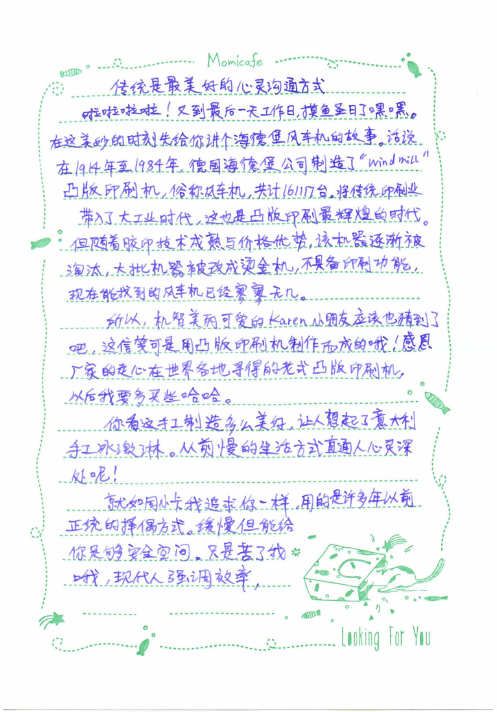 Momicafe
传统是最美好的心灵沟通方式
啦啦啦啦啦！又到最后一天工作日，摸鱼圣日了嘿嘿。
在这美妙的时刻先给你讲个海德堡风车机的故事。话说
在1914年至1984年，德国海德堡公司制造了“Windmill”
凸版印刷机，俗称风车机，共计161117台。将传统印刷业
带入了大工业时代，这也是凸版印刷最辉煌的时代。
但随着胶印技术成熟与价格优势，该机器逐渐被
淘汰，大批机器被改成烫金机，不具备印刷功能，
现在能找到的风车机已经寥寥无几。
所以，机智美丽可爱的Karen小朋友应该也猜到了
吧，这信笺可是用凸版印刷机制作而成的哦！感恩
厂家的走心在世界各地寻得的老式凸版印刷机，
以后我要多买些哈哈。
你看这手工制造多么美好，让人想起了意大利
手工冰激淋。从前慢的生活方式直通人心灵深
处呢！
就如同小卡我追求你一样，用的是许多年以前
正统的择偶方式。缓慢但能给
你足够安全空间。只是苦了我
哦，现代人强调效率，
Looking For You